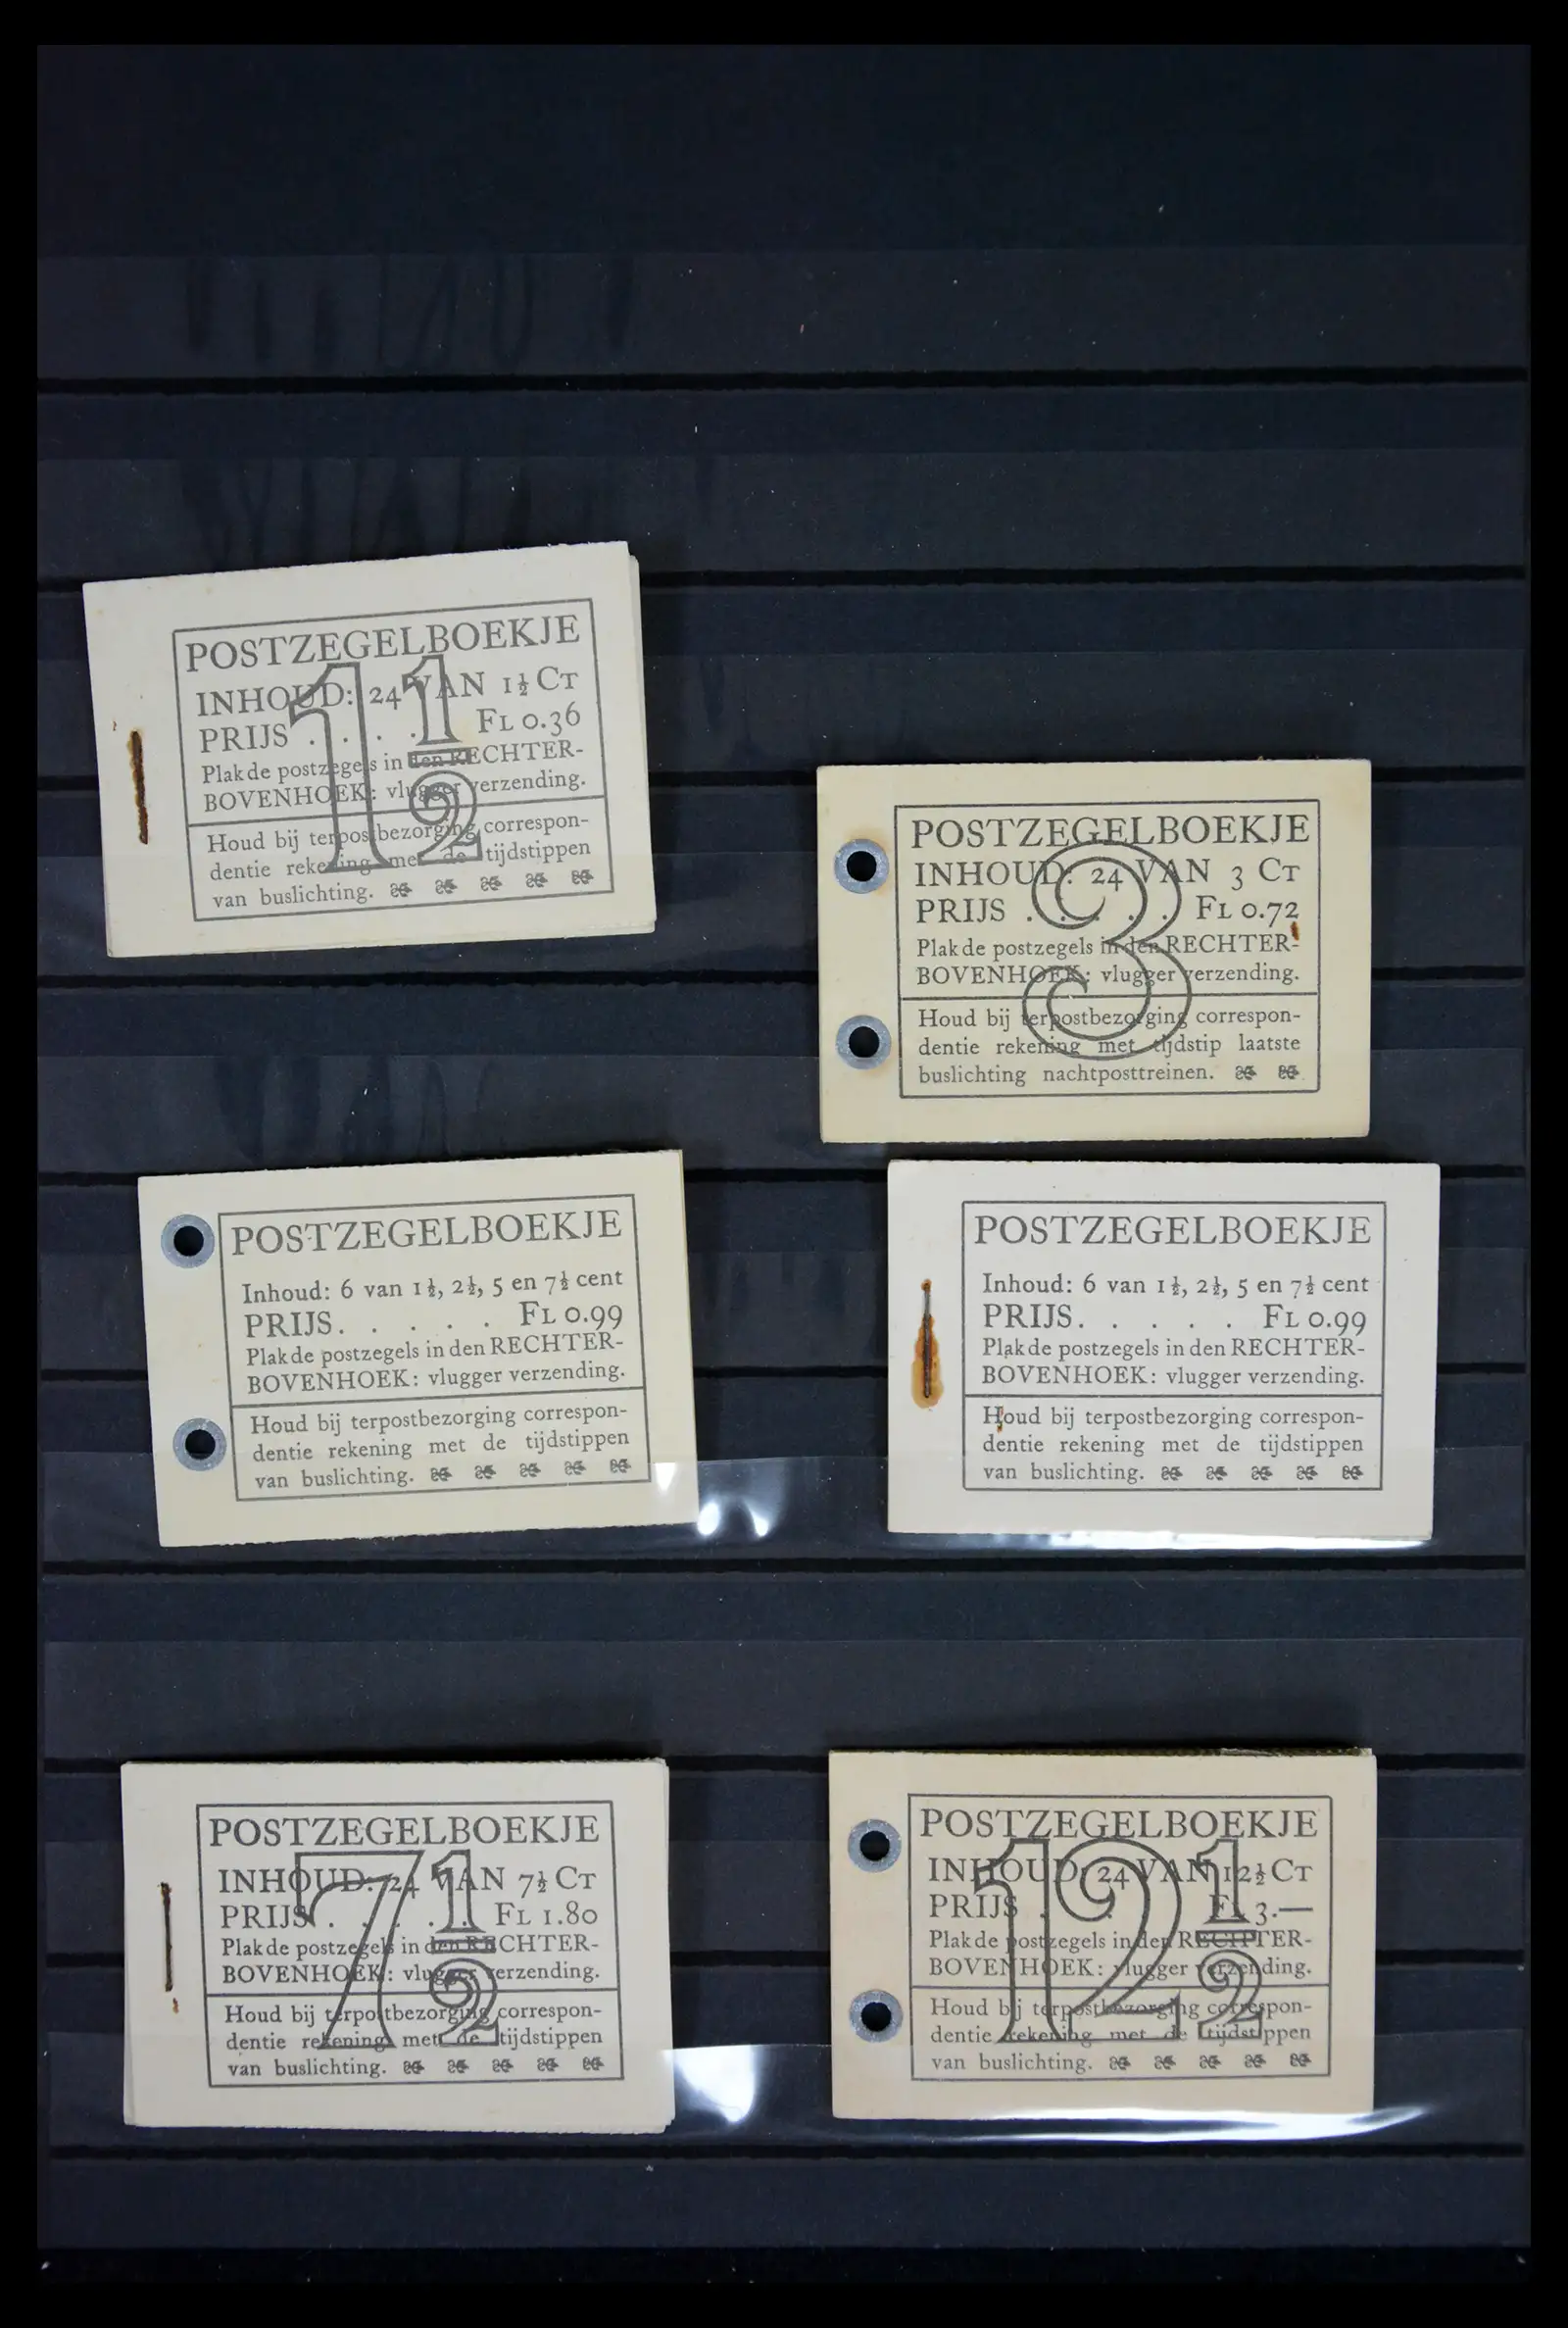 POSTZEGELBOEKJE
INHOUD: 24 VAN 1½ CT
PRIJS . . . . FL 0.36
Plak de postzegels in den RECHTER-
BOVENHOEK: vlugger verzending.
Houd bij terpostbezorging correspon-
dentie rekening met de tijdstippen
van buslichting.
1½
POSTZEGELBOEKJE
INHOUD: 24 VAN 3 CT
PRIJS . . . . FL 0.72
Plak de postzegels in den RECHTER-
BOVENHOEK: vlugger verzending.
Houd bij terpostbezorging correspon-
dentie rekening met tijdstip laatste
buslichting nachtposttreinen.
3
POSTZEGELBOEKJE
Inhoud: 6 van 1½, 2½, 5 en 7½ cent
PRIJS. . . . . FL 0.99
Plak de postzegels in den RECHTER-
BOVENHOEK: vlugger verzending.
Houd bij terpostbezorging correspon-
dentie rekening met de tijdstippen
van buslichting.
POSTZEGELBOEKJE
Inhoud: 6 van 1½, 2½, 5 en 7½ cent
PRIJS. . . . . FL 0.99
Plak de postzegels in den RECHTER-
BOVENHOEK: vlugger verzending.
Houd bij terpostbezorging correspon-
dentie rekening met de tijdstippen
van buslichting.
POSTZEGELBOEKJE
INHOUD: 24 VAN 7½ CT
PRIJS . . . . . FL 1.80
Plak de postzegels in den RECHTER-
BOVENHOEK: vlugger verzending.
Houd bij terpostbezorging correspon-
dentie rekening met de tijdstippen
van buslichting.
7½
POSTZEGELBOEKJE
INHOUD: 24 VAN 12½ CT
PRIJS . . FL 3.—
Plak de postzegels in den RECHTER-
BOVENHOEK: vlugger verzending.
Houd bij terpostbezorging correspon-
dentie rekening met de tijdstippen
van buslichting.
12½